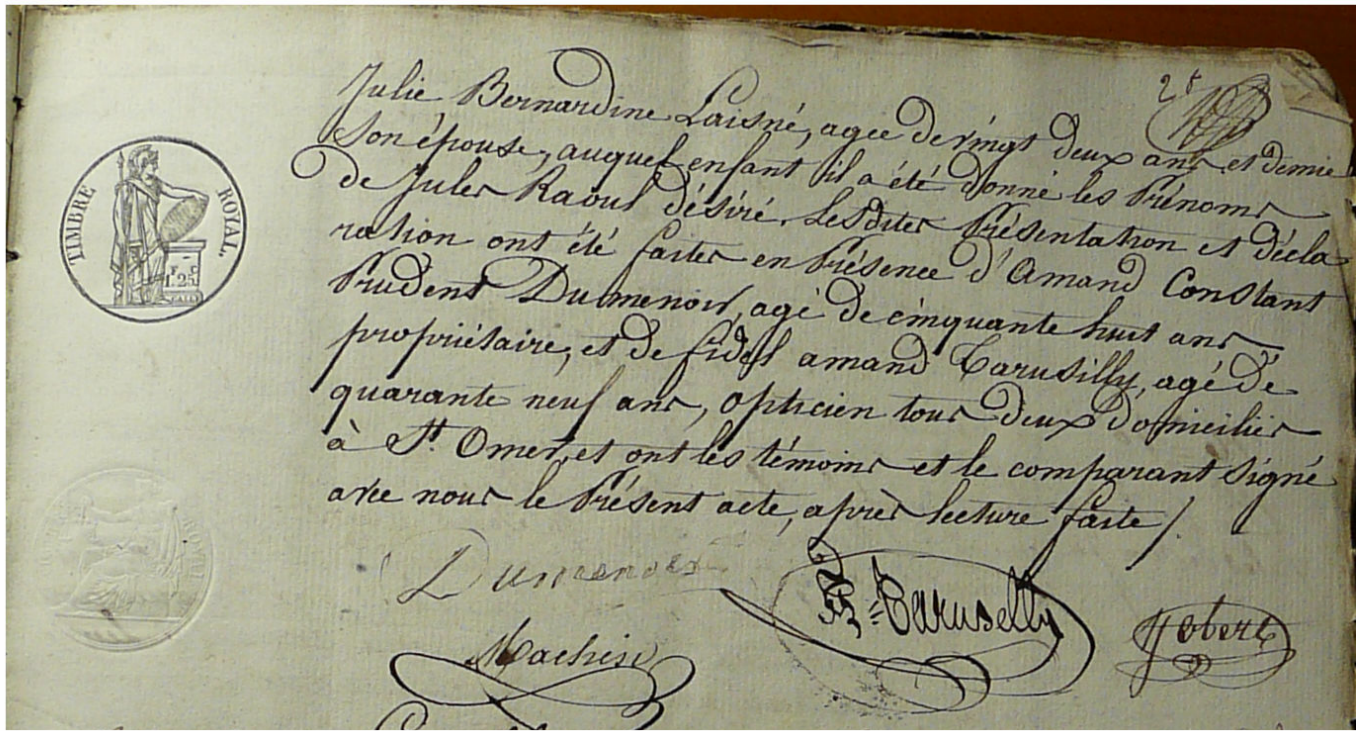 2t
Julie Bernardine Laisné, agée de vingt deux ans et demie
son épouse, auquel enfant il a été donné les Prénoms
de Jules Raoul désiré. Lesdites Présentation et décla
ration ont été faites en Présence d'Amand Constant
Prudent Dumenoir, agé de cinquante huit ans
propriétaire, et de fidel amand Carusilly, agé de
quarante neuf ans, Opticien tous deux domiciliés
à St. Omer, et ont les témoins et le comparant signé
avec nous le Présent acte, après lecture faite /.
TIMBRE ROYAL
1.25
Dumenoir
Caruselly
Machin
Hobert